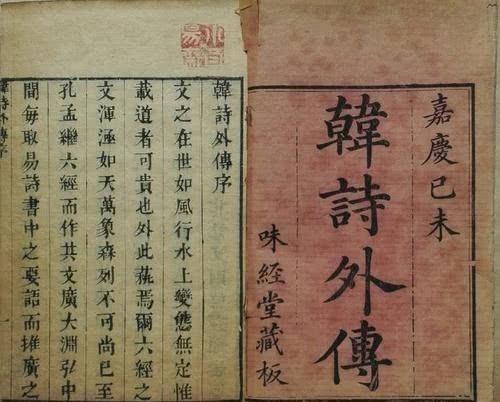 嘉慶已未
韓詩外傳
味經堂藏板
韓詩外傳序
文之在世如風行水上變態無定惟
載道者可貴也外此蓺焉爾六經之
文渾涵如天萬象森列不可尚已至
孔孟繼六經而作其文廣大淵弘中
間每取易詩書中之要語而推廣之
韓詩外傳序
一